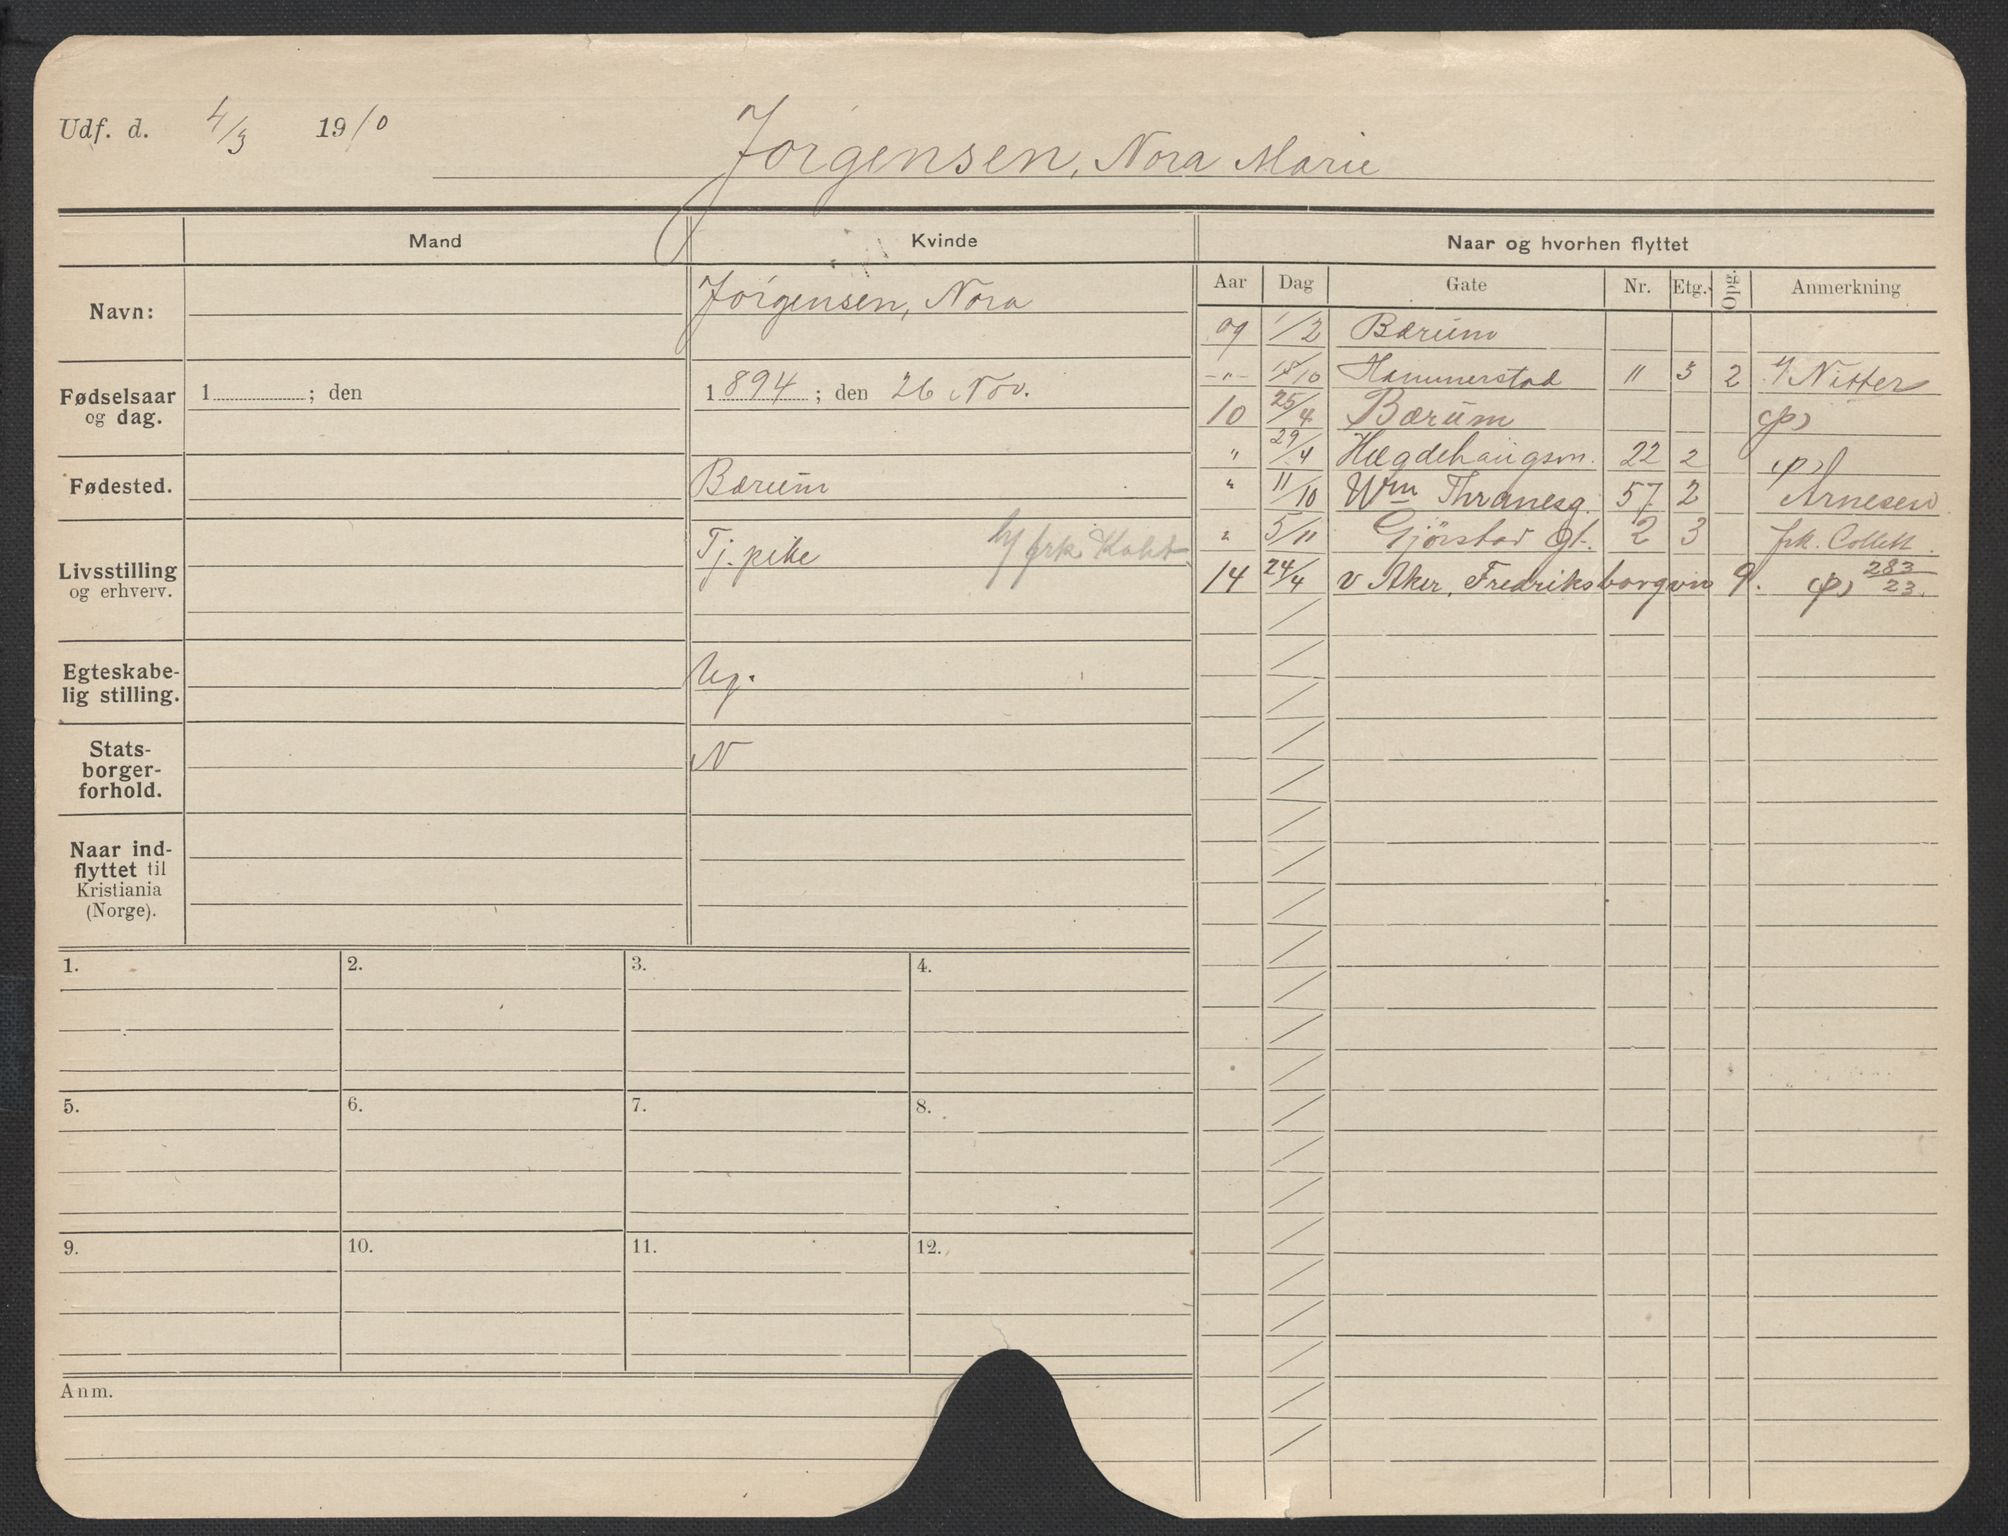 Udf. d. 4/3 1910
Jørgensen, Nora Marie
Mand
Kvinde
Naar og hvorhen flyttet
Navn:
Jørgensen, Nora
Fødselsaar
og dag.
1 ; den
1894 ; den 26 Nov.
Fødested.
Bærum
Livsstilling
og erhverv.
Tj. pike
Egteskabe-
lig stilling.
Ug.
Stats-
borger-
forhold.
N
Naar ind-
flyttet til
Kristiania
(Norge).
Aar Dag Gate Nr. Etg. Opg. Anmerkning
09 1/2 Bærum
-"- 15/10 Hammerstad 11 3 2 Nitter
10 25/4 Bærum (p)
" 29/4 Hegdehaugsvn. 22 2 (p)
" 11/10 Wm Thranesg. 57 2 Arnesen
" 5/11 Gjørstad gt. 2 3 frk. Collett.
14 24/4 v Aker, Fredriksborgvn 9. (p) 283/23.
1.
2.
3.
4.
5.
6.
7.
8.
9.
10.
11.
12.
Anm.